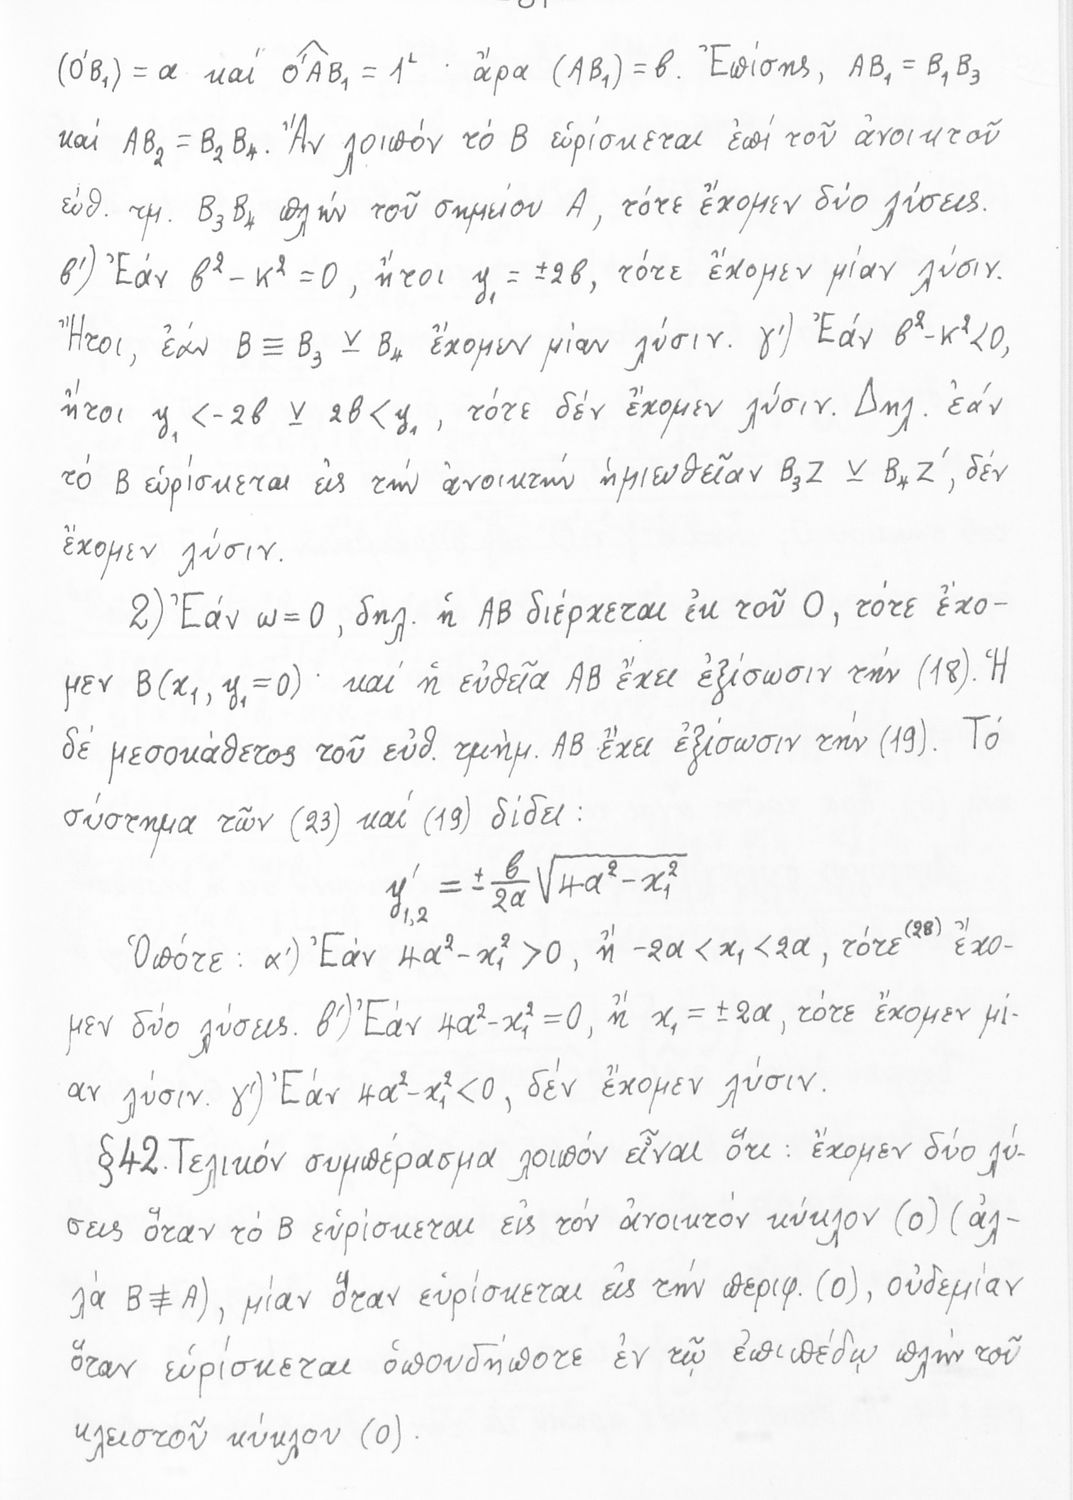 (O´B₁) = α καί O´ÂB₁ = 1ᴸ · ἄρα (AB₁) = β. Ἐπίσης, AB₁ = B₁B₃
καί AB₂ = B₂B₄. Ἄν λοιπόν τό B εὑρίσκεται ἐπί τοῦ ἀνοικτοῦ
εὐθ. τμ. B₃B₄ πλήν τοῦ σημείου A, τότε ἔχομεν δύο λύσεις.
β´) Ἐάν β² - κ² = 0, ἤτοι y₁ = ±2β, τότε ἔχομεν μίαν λύσιν.
Ἤτοι, ἐάν B ≡ B₃ ⊻ B₄ ἔχομεν μίαν λύσιν. γ´) Ἐάν β² - κ² < 0,
ἤτοι y₁ < -2β ⊻ 2β < y₁, τότε δέν ἔχομεν λύσιν. Δηλ. ἐάν
τό B εὑρίσκεται εἰς τήν ἀνοικτήν ἡμιευθεῖαν B₃Z ⊻ B₄Z´, δέν
ἔχομεν λύσιν.
2) Ἐάν ω = 0, δηλ. ἡ AB διέρχεται ἐκ τοῦ O, τότε ἔχο-
μεν B(x₁, y₁ = 0) · καί ἡ εὐθεῖα AB ἔχει ἐξίσωσιν τήν (18). Ἡ
δέ μεσοκάθετος τοῦ εὐθ. τμήμ. AB ἔχει ἐξίσωσιν τήν (19). Τό
σύστημα τῶν (23) καί (19) δίδει:
y´₁,₂ = ± β/2α √(4α² - x₁²)
Ὁπότε: α´) Ἐάν 4α² - x₁² > 0, ἤ -2α < x₁ < 2α, τότε⁽²⁸⁾ ἔχο-
μεν δύο λύσεις. β´) Ἐάν 4α² - x₁² = 0, ἤ x₁ = ±2α, τότε ἔχομεν μί-
αν λύσιν. γ´) Ἐάν 4α² - x₁² < 0, δέν ἔχομεν λύσιν.
§42. Τελικόν συμπέρασμα λοιπόν εἶναι ὅτι: ἔχομεν δύο λύ-
σεις ὅταν τό B εὑρίσκεται εἰς τόν ἀνοικτόν κύκλον (O) (ἀλ-
λά B ≢ A), μίαν ὅταν εὑρίσκεται εἰς τήν περιφ. (O), οὐδεμίαν
ὅταν εὑρίσκεται ὁπουδήποτε ἐν τῷ ἐπιπέδῳ πλήν τοῦ
κλειστοῦ κύκλου (O).